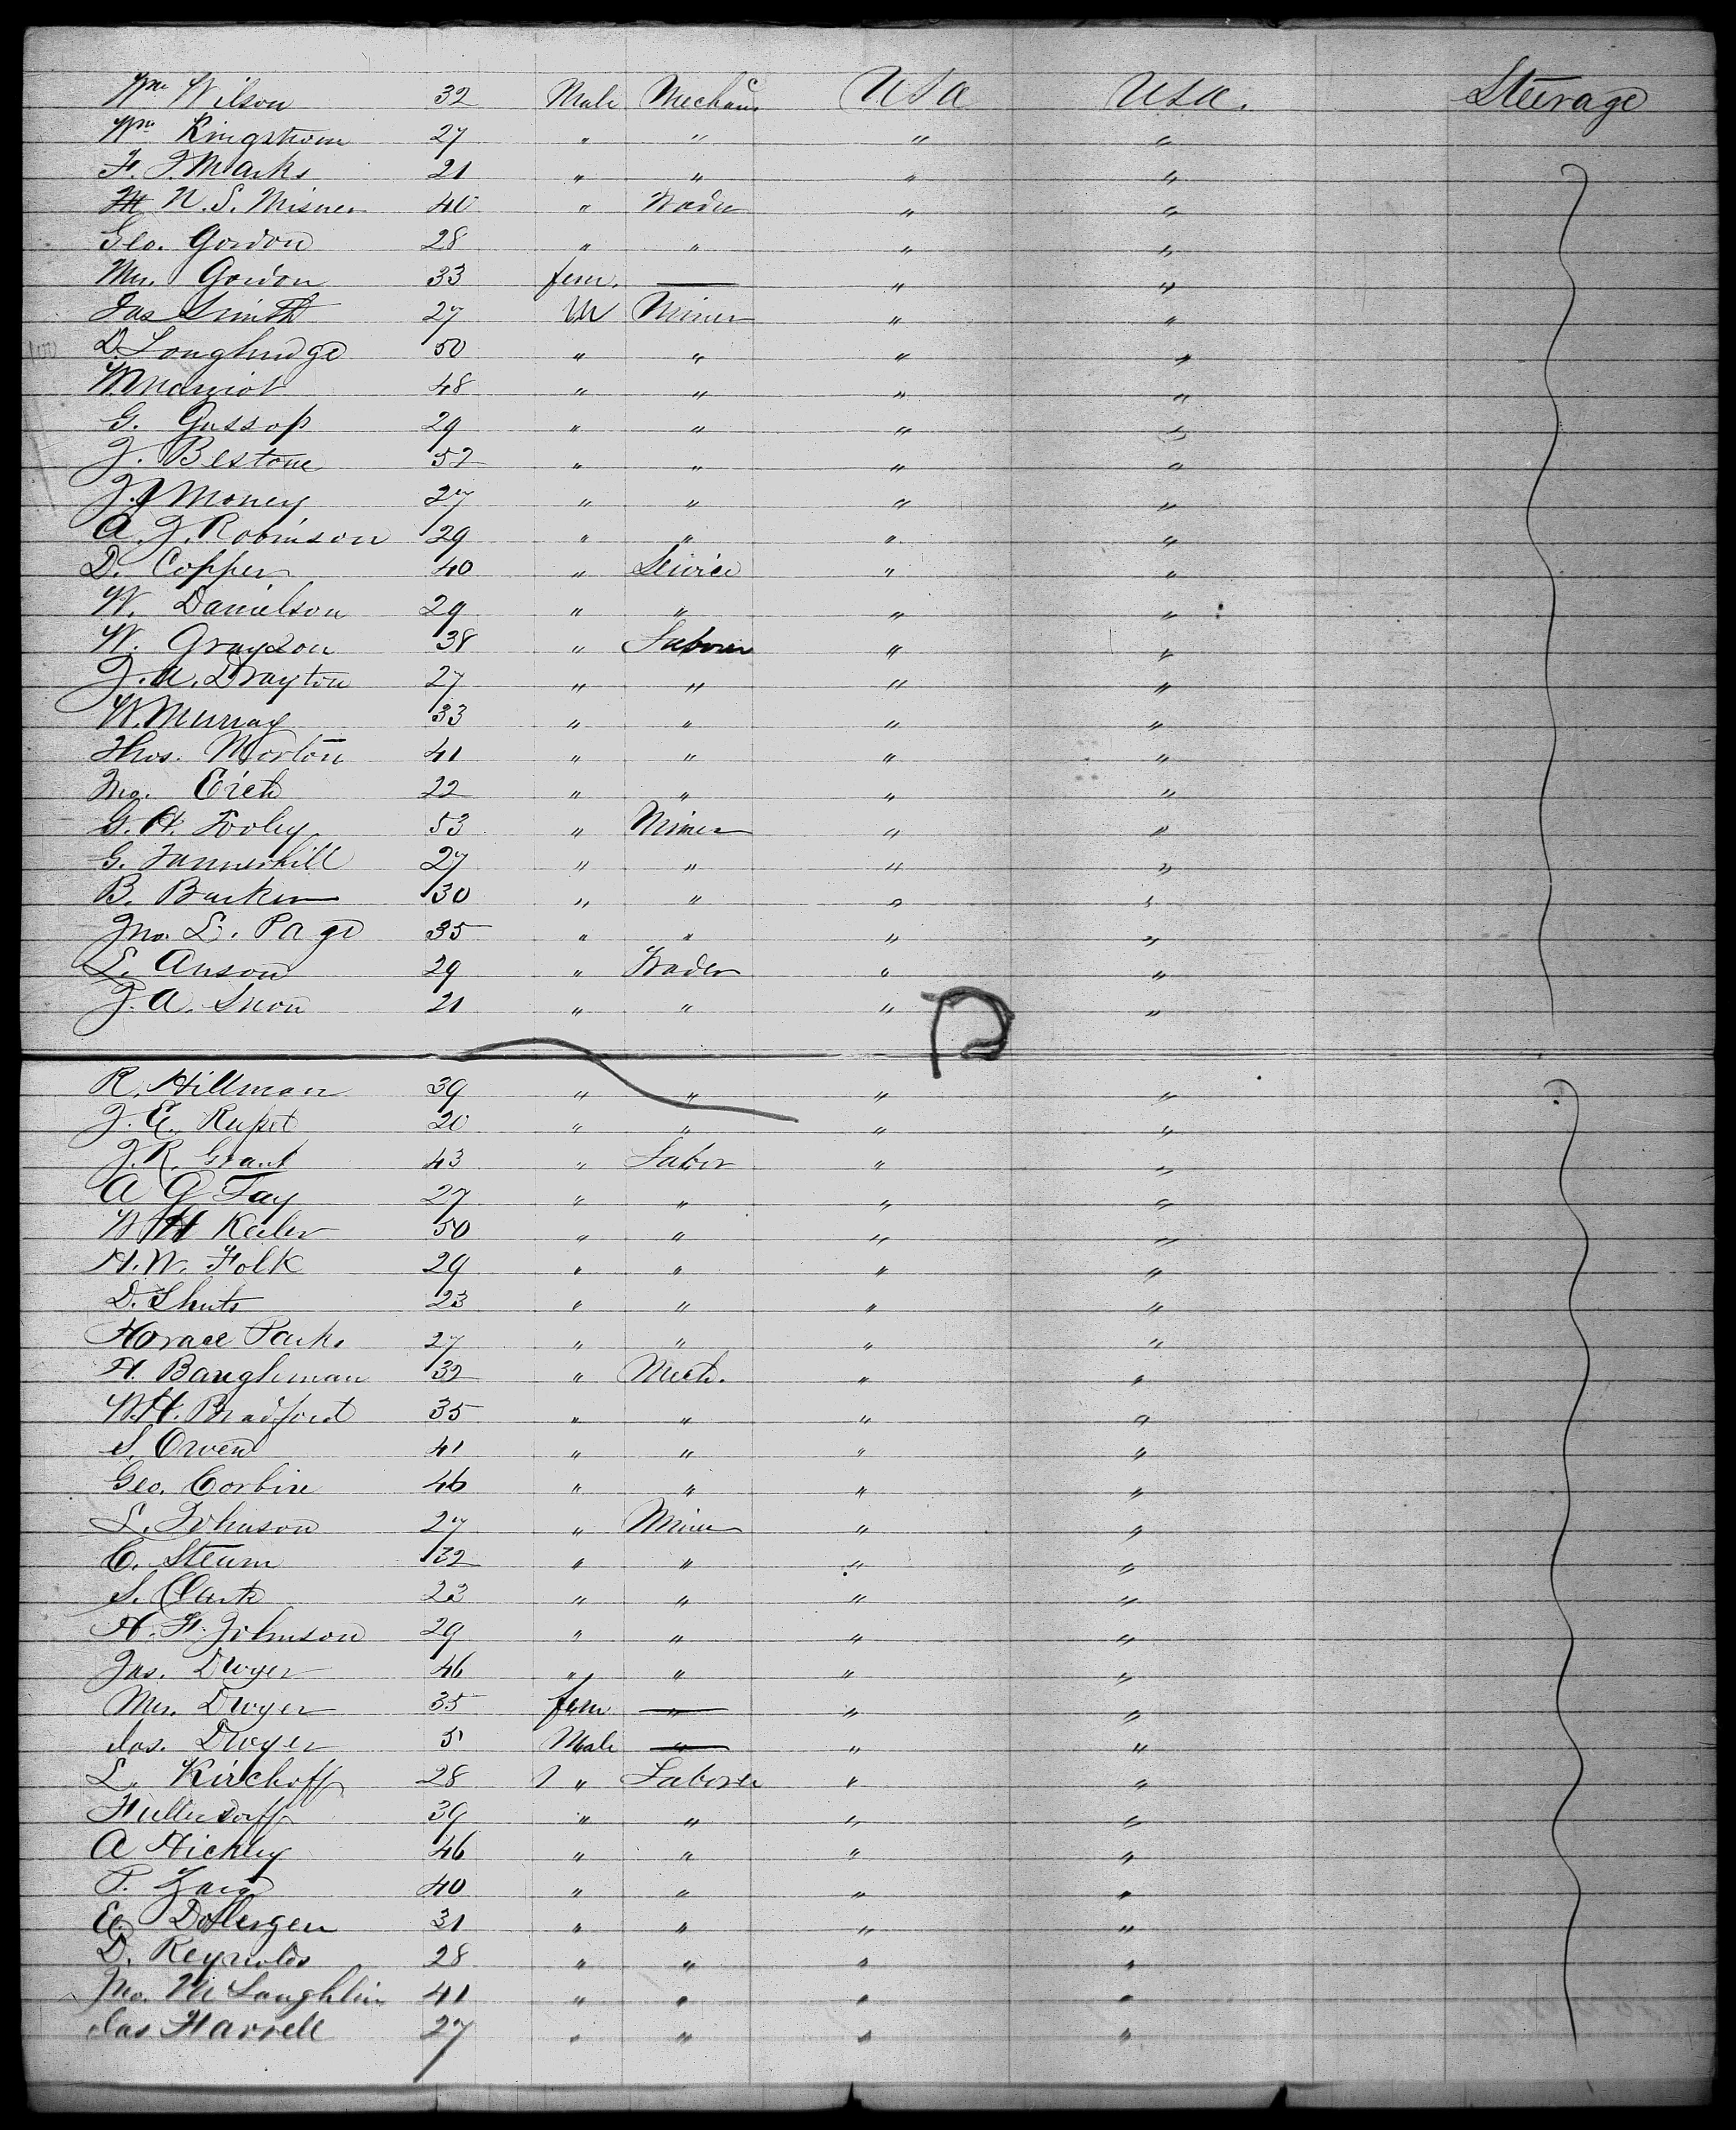 Wm Wilson 32 Male Mechanc USA USA. Steerage
Wm Ringstrom 27 " " " "
F. J. Marks 21 " " " "
N. S. Misner 40 " Trader " "
Geo. Gordon 28 " " " "
Mrs. Gordon 33 fem. — " "
Jas Smith 27 M Miner " "
D. Longhridge 50 " " " "
W. Marriot 48 " " " "
G. Gassop 29 " " " "
J. Bestone 52 " " " "
J. J Money 27 " " " "
A. J. Robinson 29 " " " "
D. Copper 40 " Service " "
W. Danielson 29 " " " "
W. Grayson 38 " Laborer " "
J. A. Drayton 27 " " " "
W. Murray 33 " " " "
Thos. Morton 41 " " " "
Jno. Eich 22 " " " "
G. H. Fooley 53 " Miner " "
G. Tannerhill 27 " " " "
B. Barker 30 " " " "
Jno. L. Page 35 " " " "
L. Anson 29 " Trader " "
J. A. Snow 21 " " " "
R. Hillman 39 " " " "
J. E. Rupet 20 " " " "
J. R. Grant 43 " Labor " "
A G Fay 27 " " " "
W H Keeler 50 " " " "
H. W. Folk 29 " " " "
D. Shuts 23 " " " "
Horace Parks 27 " " " "
H. Baughman 32 " Mech. " "
W. H. Bradford 35 " " " "
S. Owen 41 " " " "
Geo. Corbin 46 " " " "
L. Johnson 27 " Miner " "
C. Stearn 32 " " " "
S. Clark 23 " " " "
H. F. Johnson 29 " " " "
Jas. Dwyer 46 " " " "
Mrs. Dwyer 35 fem — " "
Jos. Dwyer 5 Male — " "
L. Kirchoff 28 " Laborer " "
Fullersdorff 39 " " " "
A Hickey 46 " " " "
P. 40 " " " "
E. Dollergen 31 " " " "
D. Reynolds 28 " " " "
Jno. McLaughlin 41 " " " "
Jas Harrell 27 " " " "